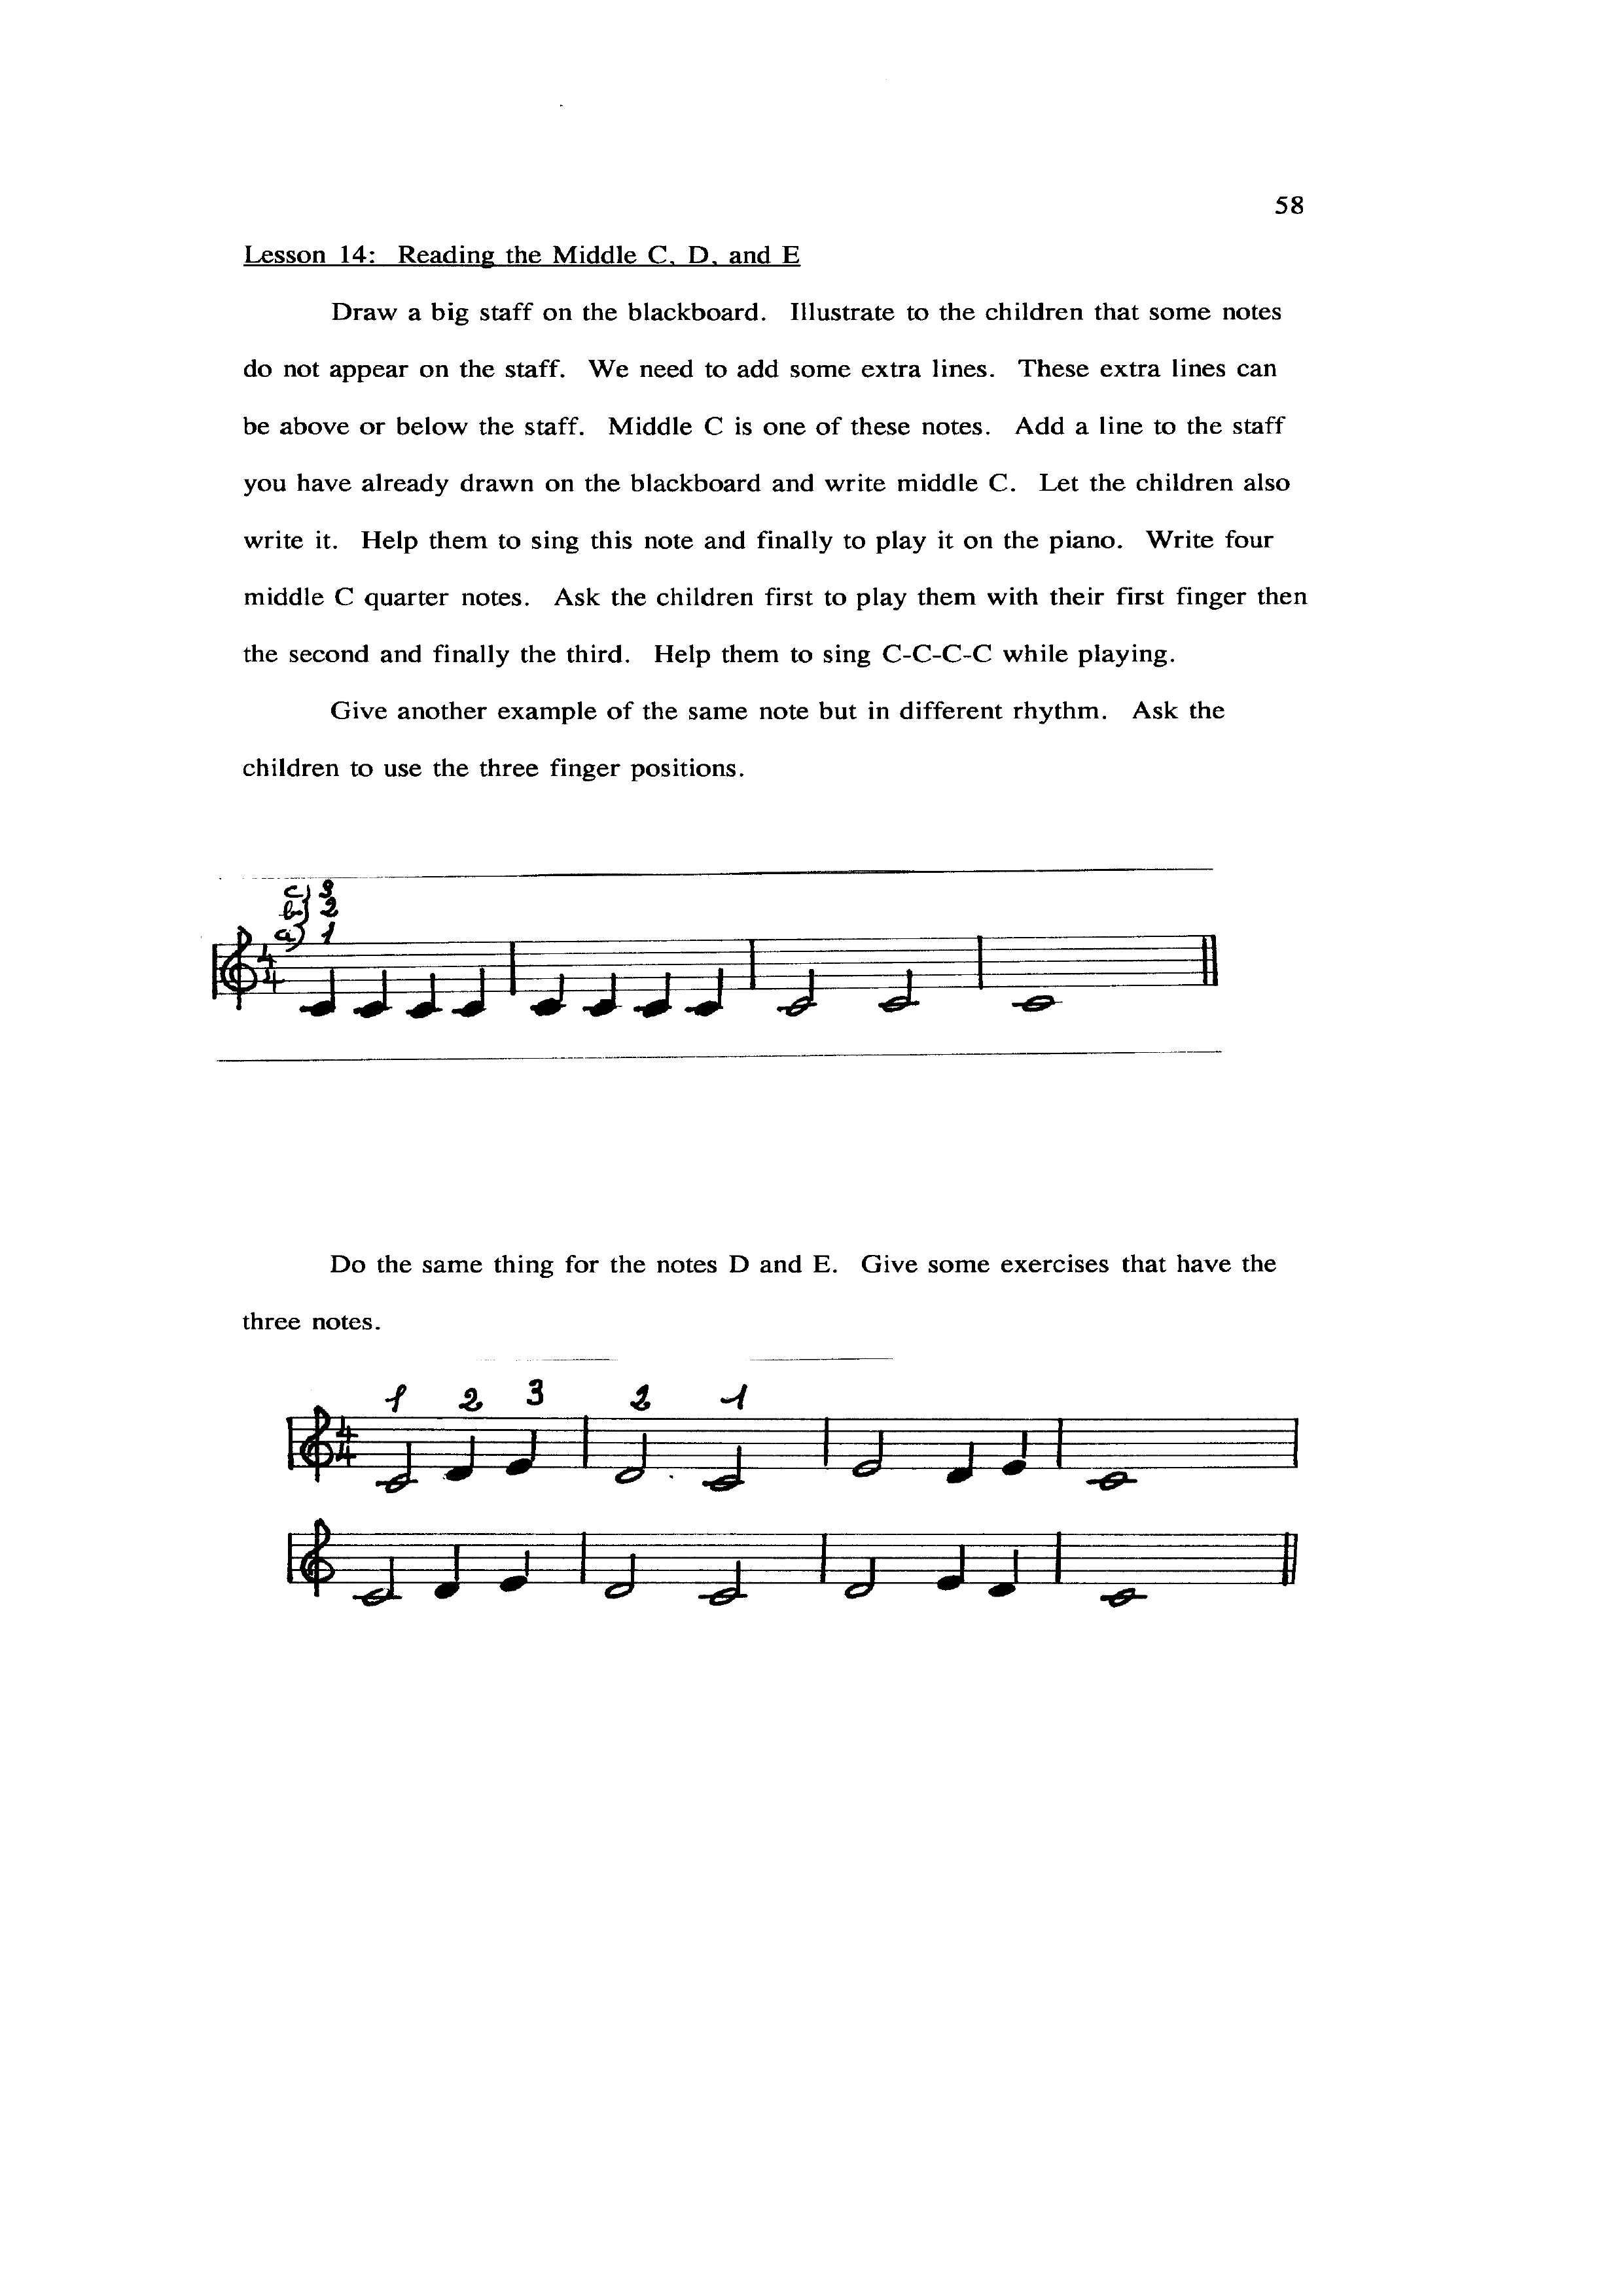 58
Lesson 14: Reading the Middle C, D, and E
Draw a big staff on the blackboard. Illustrate to the children that some notes
do not appear on the staff. We need to add some extra lines. These extra lines can
be above or below the staff. Middle C is one of these notes. Add a line to the staff
you have already drawn on the blackboard and write middle C. Let the children also
write it. Help them to sing this note and finally to play it on the piano. Write four
middle C quarter notes. Ask the children first to play them with their first finger then
the second and finally the third. Help them to sing C-C-C-C while playing.
Give another example of the same note but in different rhythm. Ask the
children to use the three finger positions.
c) 3
b) 2
a) 1
4
4
Do the same thing for the notes D and E. Give some exercises that have the
three notes.
1 2 3 2 1
4
4